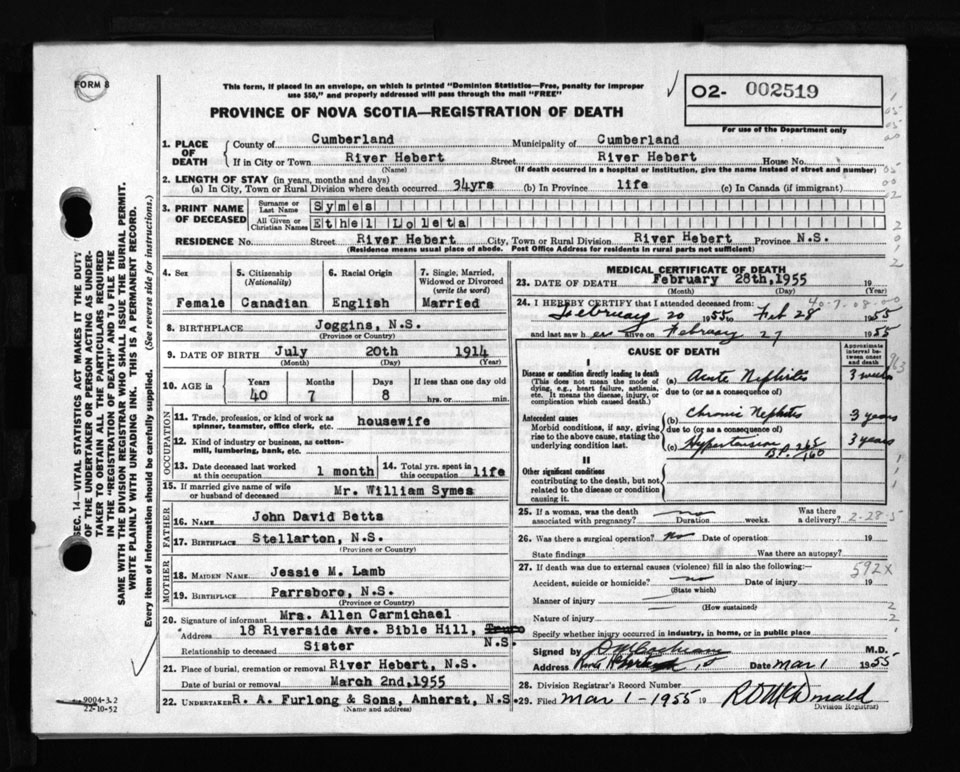 FORM 8
This form, if placed in an envelope, on which is printed "Dominion Statistics—Free, penalty for improper
use $50," and properly addressed will pass through the mail "FREE"
PROVINCE OF NOVA SCOTIA—REGISTRATION OF DEATH
O2- 002519
For use of the Department only
1. PLACE OF DEATH
County of Cumberland Municipality of Cumberland
If in City or Town River Hebert Street River Hebert House No.
(Name) (If death occurred in a hospital or institution, give the name instead of street and number)
2. LENGTH OF STAY (in years, months and days)
(a) In City, Town or Rural Division where death occurred 34yrs (b) In Province life (c) In Canada (if immigrant)
3. PRINT NAME OF DECEASED
Surname or Last Name Symes
All Given or Christian Names Ethel Loleta
RESIDENCE No. Street River Hebert City, Town or Rural Division River Hebert Province N.S.
(Residence means usual place of abode. Post Office Address for residents in rural parts not sufficient)
4. Sex
Female
5. Citizenship
(Nationality)
Canadian
6. Racial Origin
English
7. Single, Married,
Widowed or Divorced
(write the word)
Married
8. BIRTHPLACE Joggins, N.S.
(Province or Country)
9. DATE OF BIRTH July 20th 1914
(Month) (Day) (Year)
10. AGE in
Years Months Days If less than one day old
40 7 8 hrs. or min.
OCCUPATION
11. Trade, profession, or kind of work as
spinner, teamster, office clerk, etc. housewife
12. Kind of industry or business, as cotton-
mill, lumbering, bank, etc.
13. Date deceased last worked
at this occupation 1 month
14. Total yrs. spent in
this occupation life
15. If married give name of wife
or husband of deceased Mr. William Symes
FATHER
16. NAME John David Betts
17. BIRTHPLACE Stellarton, N.S.
(Province or Country)
MOTHER
18. MAIDEN NAME Jessie M. Lamb
19. BIRTHPLACE Parrsboro, N.S.
(Province or Country)
20. Signature of informant Mrs. Allen Carmichael
Address 18 Riverside Ave. Bible Hill, Truro
N.S.
Relationship to deceased Sister
21. Place of burial, cremation or removal River Hebert, N.S.
Date of burial or removal March 2nd,1955
22. UNDERTAKER R. A. Furlong & Sons, Amherst, N.S.
(Name and address)
MEDICAL CERTIFICATE OF DEATH
23. DATE OF DEATH February 28th,1955 19
(Month) (Day) (Year)
40-7-08-00
24. I HEREBY CERTIFY that I attended deceased from:
February 20 1955 to Feb 28 1955
and last saw her alive on February 27 1955
CAUSE OF DEATH
Approximate
interval be-
tween onset
and death
I
Disease or condition directly leading to death
(This does not mean the mode of
dying, e.g., heart failure, asthenia,
etc. It means the disease, injury, or
complication which caused death.)
(a) Acute Nephritis 3 weeks
due to (or as a consequence of)
Antecedent causes
Morbid conditions, if any, giving
rise to the above cause, stating the
underlying condition last.
(b) Chronic Nephritis 3 years
due to (or as a consequence of)
(c) Hypertension 3 years
B.P. 268/160
II
Other significant conditions
contributing to the death, but not
related to the disease or condition
causing it.
25. If a woman, was the death
associated with pregnancy? no Duration weeks.
Was there
a delivery? 2-28-5
26. Was there surgical operation? No Date of operation 19
State findings Was there an autopsy?
27. If death was due to external causes (violence) fill in also the following:—
592X
Accident, suicide or homicide? no Date of injury 19
(State which)
Manner of injury
(How sustained)
Nature of injury
Specify whether injury occurred in industry, in home, or in public place
Signed by D M Cochran M.D.
Address River Hebert Date Mar 1 1955
28. Division Registrar's Record Number
29. Filed Mar 1-1955 19 R D McDonald
Division Registrar
SEC. 14—VITAL STATISTICS ACT MAKES IT THE DUTY
OF THE UNDERTAKER OR PERSON ACTING AS UNDER-
TAKER TO OBTAIN ALL THE PARTICULARS REQUIRED
IN THE "REGISTRATION OF DEATH" AND TO FILE THE
SAME WITH THE DIVISION REGISTRAR WHO SHALL ISSUE THE BURIAL PERMIT.
WRITE PLAINLY WITH UNFADING INK. THIS IS A PERMANENT RECORD.
Every item of information should be carefully supplied. (See reverse side for instructions.)
9004-3.2
22-10-52